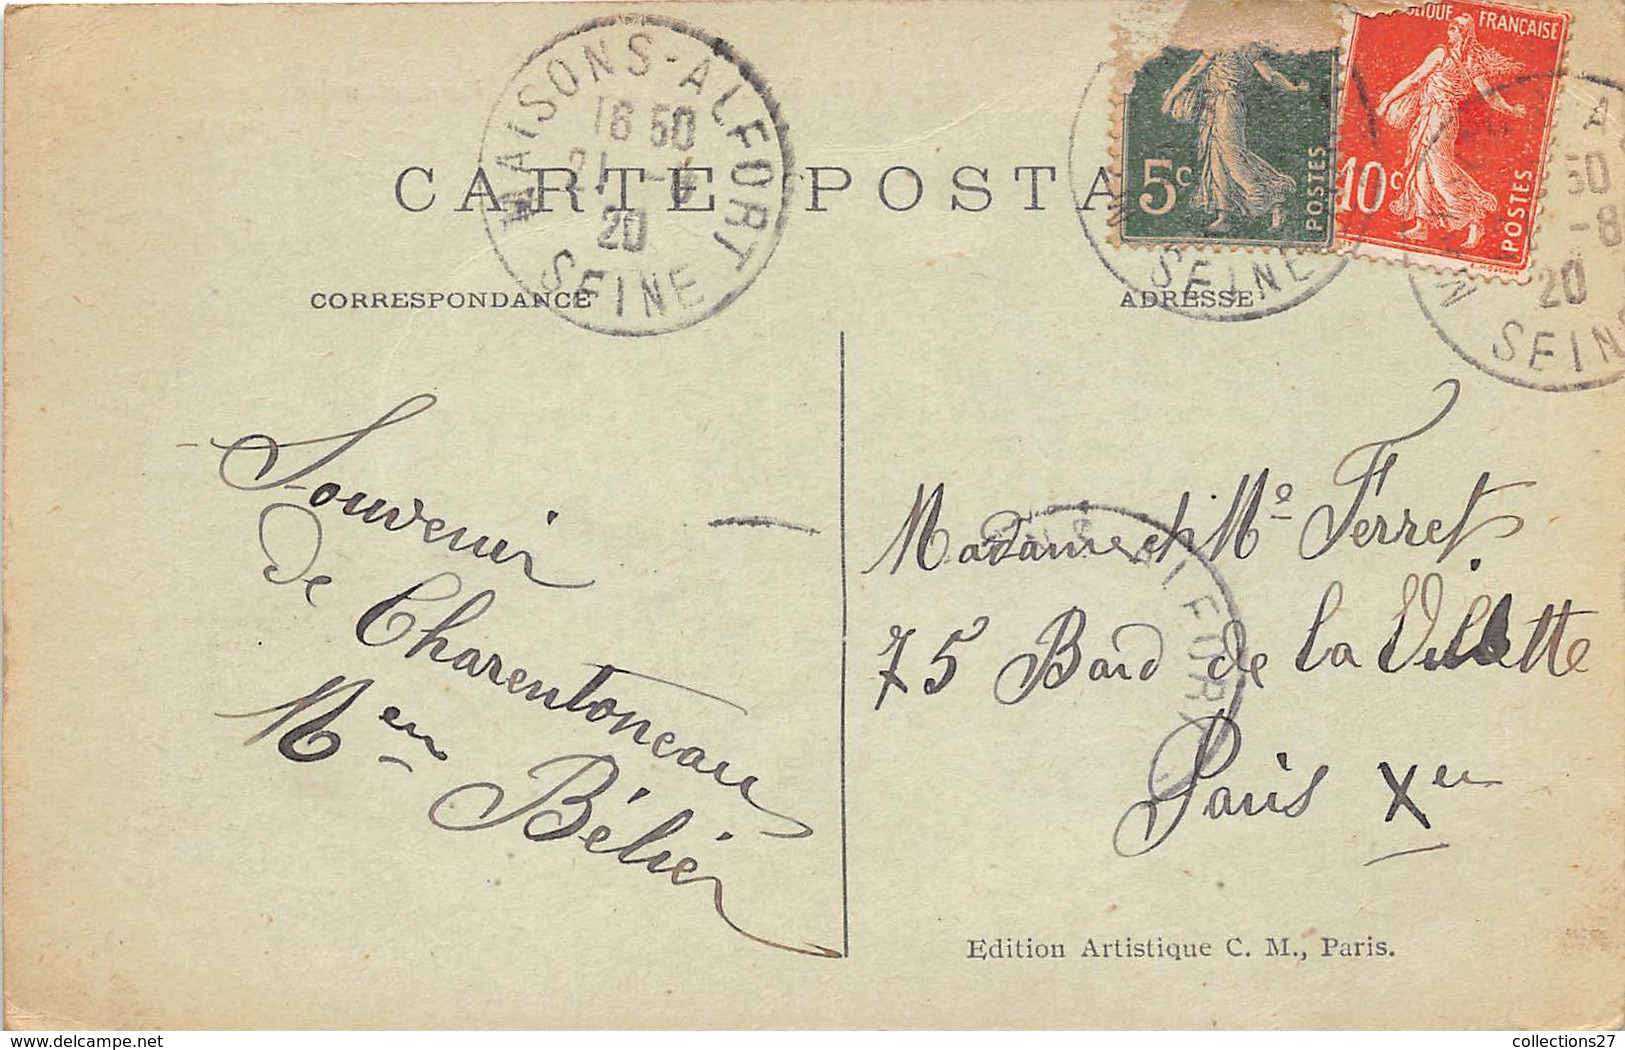 CARTE POSTA
MAISONS-ALFORT
16 50
21
20
SEINE
5c
POSTES
SEINE
FRANÇAISE
10c
POSTES
A
50
-8
20
SEIN
CORRESPONDANCE
ADRESSE
Souvenir
de Charentoneau
Men Bélier
Madame et Mr Ferret
75 Bard de la Villette
Paris Xe
ALFORT
Edition Artistique C. M., Paris.
collections27